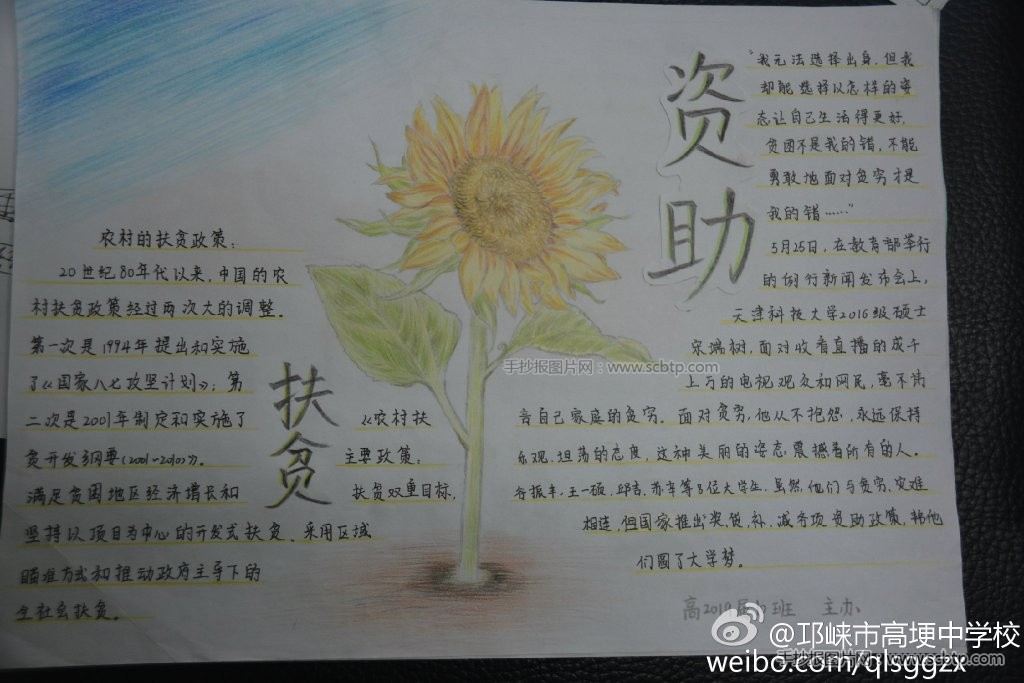 资助
"我无法选择出身,但我
却能选择以怎样的姿
态让自己生活得更好,
贫困不是我的错,不能
勇敢地面对贫穷才是
我的错……"
5月25日,在教育部举行
的例行新闻发布会上,
天津科技大学2016级硕士
宋瑞树,面对收看直播的成千
上万的电视观众和网民,毫不
言自己家庭的贫穷。面对贫穷,他从不抱怨,永远保持
乐观、坦荡的态度,这种美丽的姿态震撼着所有的人。
王一硕、邱吉、苏幸等8位大学生,虽然他们与贫穷、灾难
相连,但国家推出奖、贷、补、减各项资助政策,帮他
们圆了大学梦。
高2010届 班 主办
扶贫
农村的扶贫政策:
20世纪80年代以来,中国的农
村扶贫政策经过两次大的调整。
第一次是1994年提出和实施
了《国家八七攻坚计划》;第
二次是2001年制定和实施了 《农村扶
贫开发纲要(2001~2010)》。 主要政策:
满足贫困地区经济增长和 扶贫双重目标,
坚持以项目为中心的开发式扶贫、采用区域
瞄准方式和推动政府主导下的
全社会扶贫。
手抄报图片网:www.scbtp.com
@邛崃市高埂中学校
weibo.com/qlsggzx
手抄报图片网:www.scbtp.com